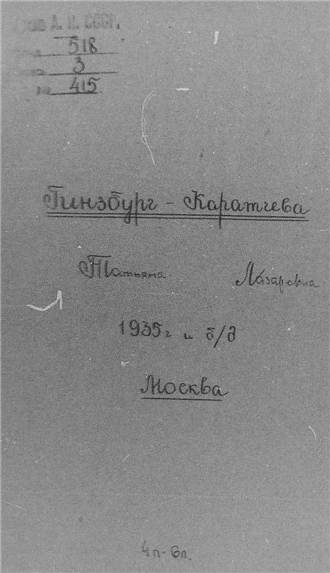 А. Н. СССР.
518
3
415
Гинзбург - Каратчева
Татьяна Лазаревна
1935г и б/д
Москва
4п-6л.